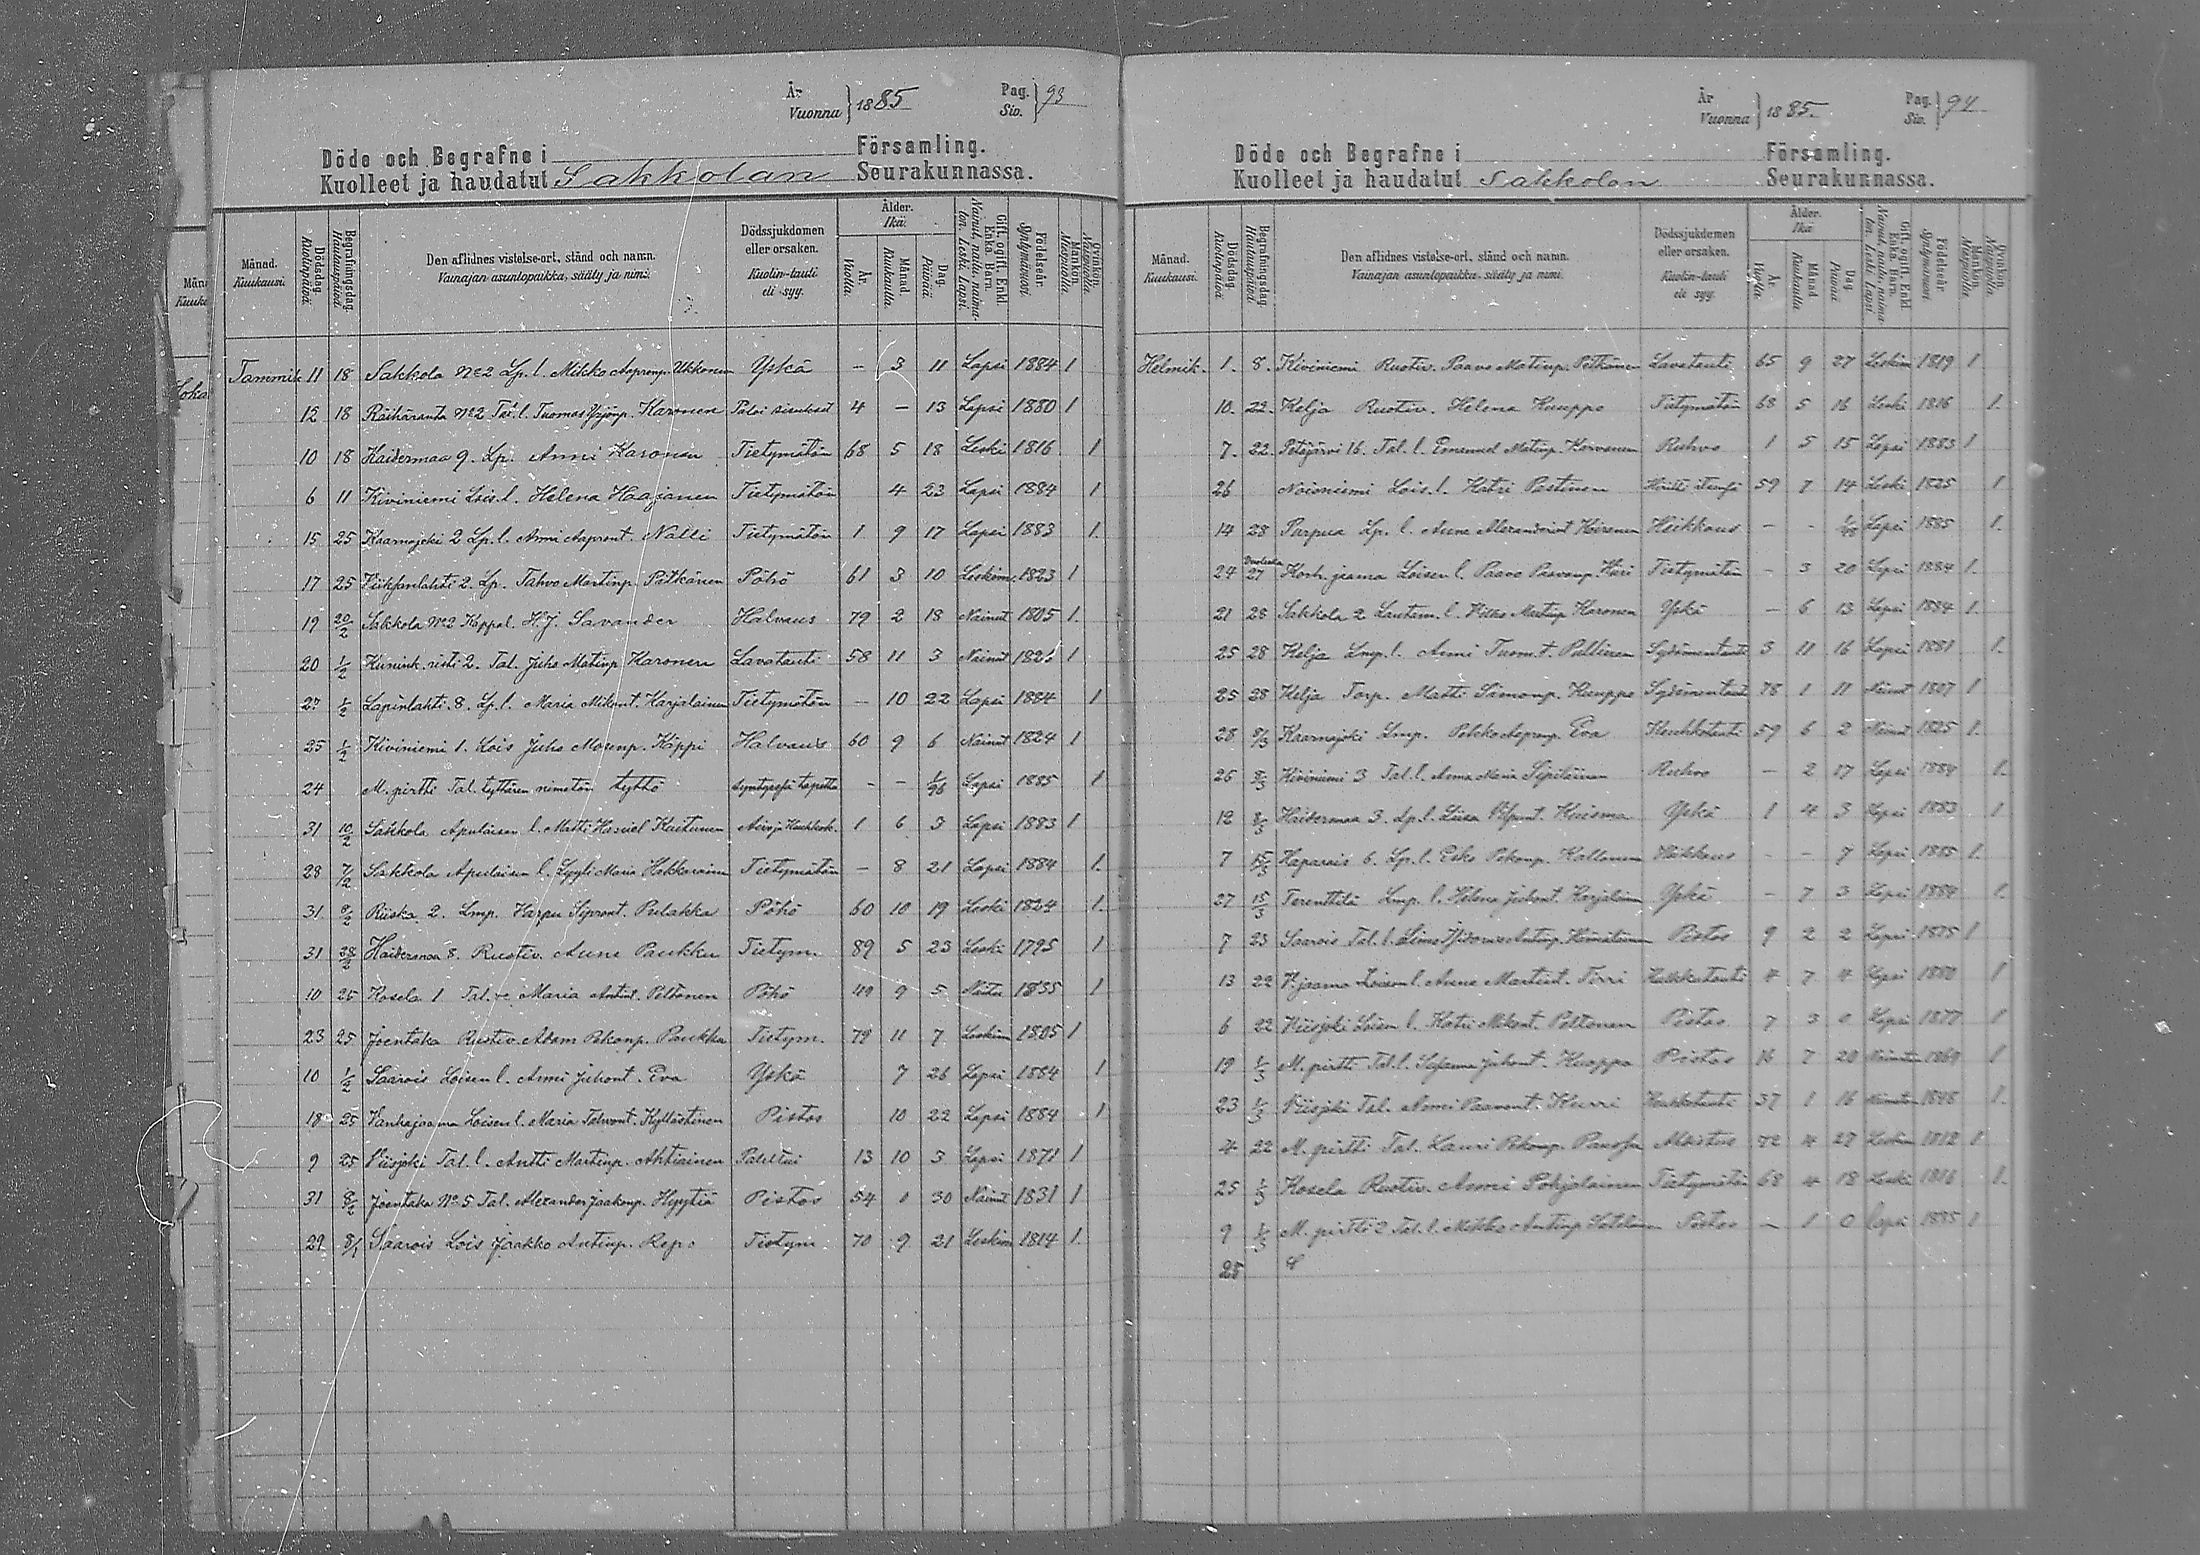 År
Vuonna } 1885 Pag. Siv. } 93
Döde och Begrafne i Församling.
Kuolleet ja haudatut Sakkolan Seurakunnassa.
Månad. Kuukausi. Dödsdag. Kuolinpäivä. Begrafningsdag. Hautauspäivä. Den aflidnes vistelse-ort, stånd och namn. Vainajan asuntopaikka, sääty ja nimi. Dödssjukdomen eller orsaken. Kuolin-tauti eli syy. Ålder. Ikä. År. Vuotta. Månad. Kuukautta. Dag. Päivää. Gift, ogift, Enkl. Enka, Barn. Nainut, naitu, naimaton, Leski, Lapsi. Födelseår. Syntymävuosi. Mankön. Miespuolia. Qvinkön. Naispuolia.
Tammik 11 18 Sakkola No 2 Lp. l. Mikko Aaprenp. Ukkonen Yskä – 3 11 Lapsi 1884 1
12 18 Räihäranta No 2 Tal. l. Tuomas Yrjönp. Karonen 4 – 13 Lapsi 1880 1
10 18 Haitermaa 9. Lp. Anni Karonen Tietymätön 68 5 18 Leski 1816 1
6 11 Kiviniemi Lois. l. Helena Haajanen Tietymätön 4 23 Lapsi 1884 1
15 25 Kaarnajoki 2 Lp. l. Anni Aaprent. Nalli Tietymätön 1 9 17 Lapsi 1883 1.
17 25 2. Lp. Tahvo Martinp. Pötkönen Pöhö 61 3 10 Leskim. 1823 1
19 20/2 Sakkola No 2 Kappal. H. J. Savander Halvaus 79 2 18 Nainut 1805 1.
20 1/2 Kunink. risti 2. Tal. Juho Matinp Karonen Lavatauti 58 11 3 Nainut 1 1
27 1/2 Lapinlahti. 8. Lp. l. Maria Mikont. Karjalainen Tietymätön – 10 22 Lapsi 1884 1
25 1/2 Kiviniemi 1. Lois Juho Köppi Halvaus 60 9 6 Nainut 1824 1
24 M. pirtti Tal. tyttären nimetön tyttö – – Lapsi 1885 1
31 10/2 Sakkola Apulaisen l. Matti 1 6 3 Lapsi 1883 1
28 7/2 Sakkola Apulaisen l. Lyyli Maria Hakkarainen Tietymätön – 8 21 Lapsi 1884 1.
31 8/2 Riiska 2. Lmp. Varpu Siprent. Pulakka Pöhö 60 10 19 Leski 1824 1.
31 28/2 Haitermaa 8. Rustiv. Anna Paukku Tietym. 89 5 23 Leski 1795 1
10 25 Kosela 1 Tal. v. Maria Antint. Peltonen Pöhö 49 9 5 Naitu 1835 1
23 25 Joentaka Rustiv. Adam Pekonp. Paukku Tietym. 79 11 7 Leskim 1805 1
10 1/2 Saarois Loisen l. Anni Juhont. Eva Yskä 7 26 Lapsi 1884 1
18 25 Vanhajaama Loisen l. Maria Tahvont. Kyllästinen Pistos 10 22 Lapsi 1884 1
9 25 Viisjoki Tal. l. Antti Martinp. Ahtiainen 13 10 3 Lapsi 1871 1
31 8/2 Joentaka No 5 Tal. Alexander Jaakonp. Hyytiä Pistos 54 1 30 Nainut 1831 1
29 Saarois Lois Jaakko Antinp. Repo Tietym 70 9 21 Leskim 1814 1.
År
Vuonna } 1885. Pag. Siv. } 94
Döde och Begrafne i Församling.
Kuolleet ja haudatut Sakkolan Seurakunnassa.
Månad. Kuukausi. Dödsdag. Kuolinpäivä. Begrafningsdag. Hautauspäivä. Den aflidnes vistelse-ort, stånd och namn. Vainajan asuntopaikka, sääty ja nimi. Dödssjukdomen eller orsaken. Kuolin-tauti eli syy. Ålder. Ikä År. Vuotta. Månad. Kuukautta. Dag Päivää Gift, ogift, Enkl. Enka, Barn. Nainut, naitu, naimaton, Leski, Lapsi Födelseår. Syntymävuosi. Mankön. Miespuolia. Qvinkön. Naispuolia.
Helmik. 1. 8. Kiviniemi Rustiv. Paavo Matinp. Pötkönen Lavatauti 65 9 27 Leskim 1819 1
10. 22. Kelja Rustiv. Helena Kuuppo Tietymätön 68 5 16 Leski 1816 1.
7. 22. Petäjärvi 16. Tal. l. Emanuel Matinp. Ruhvo 1 5 15 Lapsi 1883 1
26 Noisniemi Lois. l. Katri Pastinen 59 7 14 Leski 1825 1
14 28 Purpua Lp. l. Anna Hoironen Heikkous – – Lapsi 1885 1.
24 27 jaama Loisen l. Paavo Paavonp. Tietymätön – 3 20 Lapsi 1884 1.
21 28 Sakkola 2 Lautam. l. Mikko Martinp Karonen Yskä – 6 13 Lapsi 1884 1.
25 28 Kelja Lmp. l. Anni Tuom. t. Pullinen Sydämentauti 3 11 16 Lapsi 1881 1.
25 28 Kelja Torp. Matti Simonp. Kuuppo Sydämentauti 78 1 11 Nainut 1807 1
28 8/3 Kaarnajoki Lmp. Pekko Aaprenp. Eva Keuhkotauti 59 6 2 Nainut 1825 1
26 8/3 Kiviniemi 3 Tal. l. Anna Maria Sipiläinen Ruhvo – 2 17 Lapsi 1884 1.
12 8/3 Haitermaa 3. Lp. l. Liisa Huisma Yskä 1 4 3 Lapsi 1883 1
7 15/3 Haparais 6. Lp. l. Esko Pekonp. Kallonen Heikkous – – 7 Lapsi 1885 1.
27 15/3 Terenttilä Lmp. l. Helena Juhont. Karjalainen Yskä – 7 3 Lapsi 1884 1.
7 23 Saarois Tal. l. Antinp. Pistos 9 2 2 Lapsi 1875 1
13 22 V. jaama Loisen l. Anna Martint. Torri 4 7 4 Lapsi 1880 1
6 22 Viisjoki Loisen l. Katri Mikont. Peltonen Pistos 7 3 0 Lapsi 1877 1
19 1/3 M. pirtti Tal. l. Susanna Juhont. Kuoppa Pistos 16 7 20 1
23 1/3 Viisjoki Tal. Anni Paavont. Hurri Keuhkotauti 37 1 16 1.
4 22 M. pirtti Tal. Lauri Pekonp. 72 4 27 Leskim 1812 1
25 1/3 Kosela Rustiv. Anni Pohjolainen Tietymätön 68 4 18 Leski 1816 1.
9 1/3 M. pirtti 2 Tal. l. Mikko Antinp Pistos – 1 0 Lapsi 1885 1
25